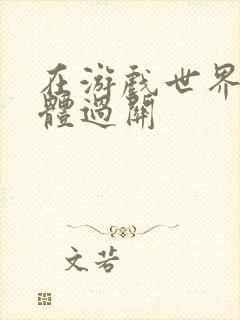 在游戏世界
體過關
文若